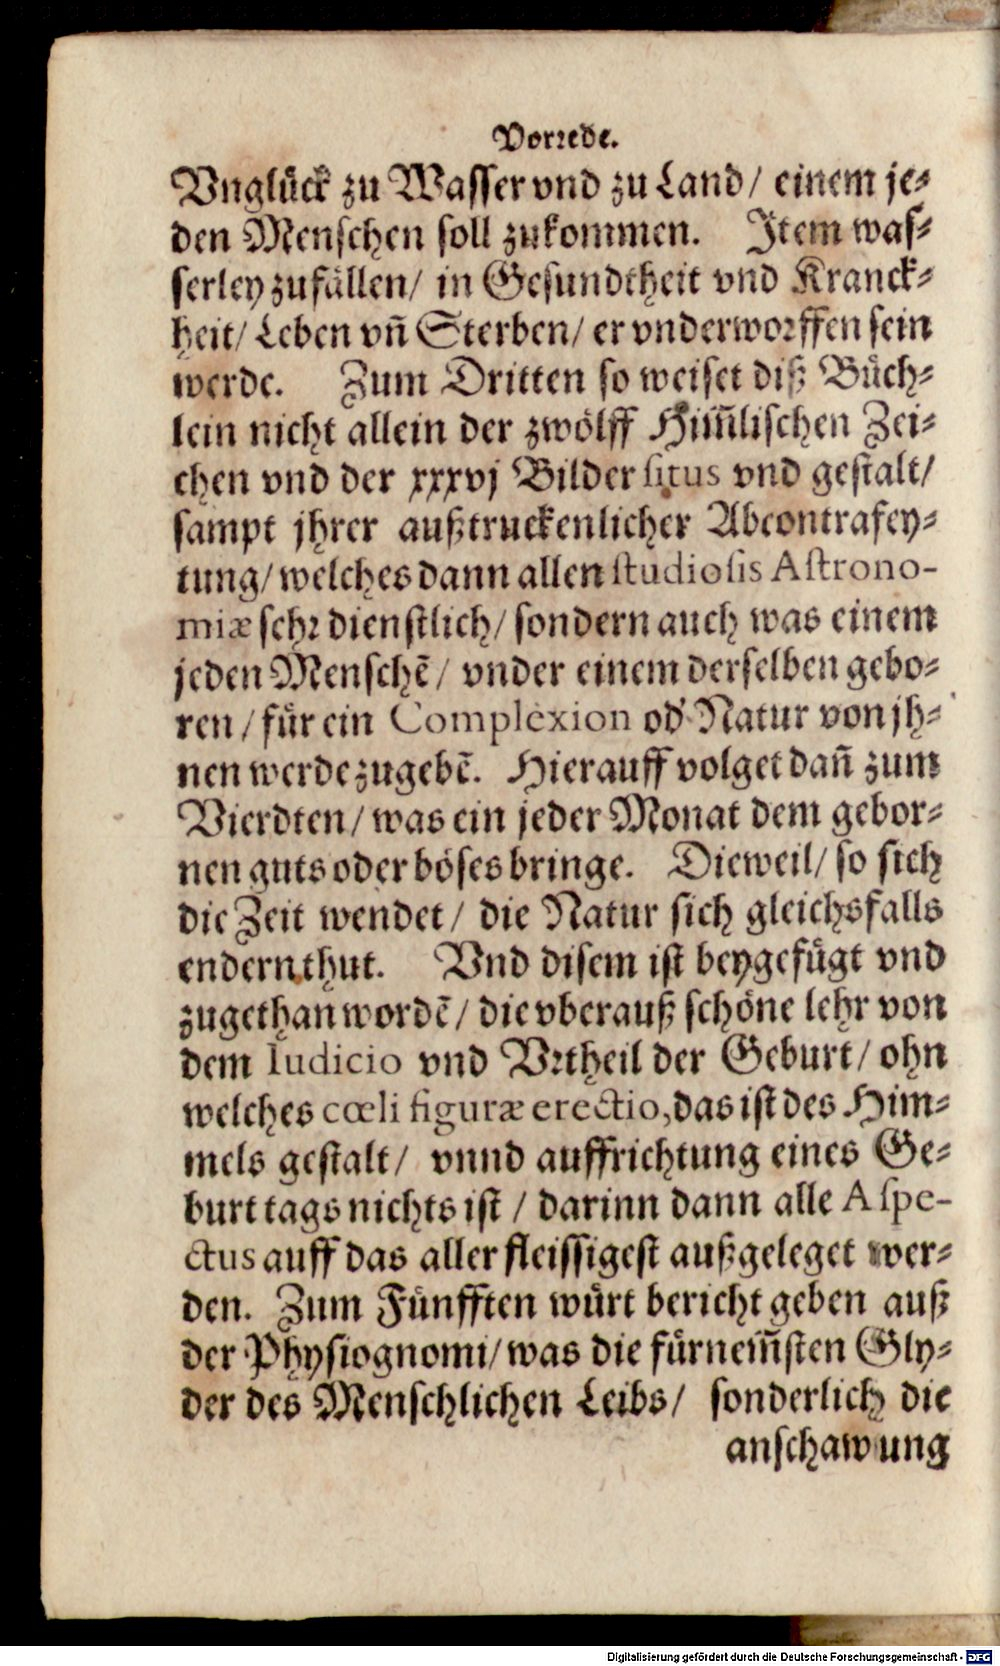 Vorꝛede.
Vnglůck zu Waſſer vnd zu Land/ einem je⸗
den Menſchen ſoll zukommen. Item waſ⸗
ſerley zufållen/ in Geſundtheit vnd Kranck⸗
heit/ Leben vñ Sterben/ er vnderwoꝛffen ſein
werde. Zum Dritten ſo weiſet diß Bůch⸗
lein nicht allein der zwölff Him̃liſchen Zei⸗
chen vnd der xxxvj Bilder ſitus vnd geſtalt/
ſampt jhrer außtruckenlicher Abcontrafey⸗
tung/ welches dann allen ſtudioſis Aſtrono-
miæ ſehꝛ dienſtlich/ ſondern auch was einem
jeden Menſchẽ/ vnder einem derſelben gebo⸗
ren/ fůr ein Complexion od' Natur von jh⸗
nen werde zugebẽ. Hierauff volget dañ zum
Vierdten/ was ein jeder Monat dem gebor⸗
nen guts oder böſes bringe. Dieweil/ ſo ſich
die Zeit wendet/ die Natur ſich gleichsfalls
endern thut. Vnd diſem iſt beygefůgt vnd
zugethan wordẽ/ die vberauß ſchöne lehr von
dem Iudicio vnd Vꝛtheil der Geburt/ ohn
welches cœli figuræ erectio, das iſt des Him⸗
mels geſtalt/ vnnd auffrichtung eines Ge⸗
burt tags nichts iſt/ darinn dann alle Aſpe-
ctus auff das aller fleiſſigeſt außgeleget wer⸗
den. Zum Fůnfften wůrt bericht geben auß
der Phyſiognomi/ was die fůrnem̃ſten Gly⸗
der des Menſchlichen Leibs/ ſonderlich die
anſchawung
Digitalisierung gefördert durch die Deutsche Forschungsgemeinschaft - DFG